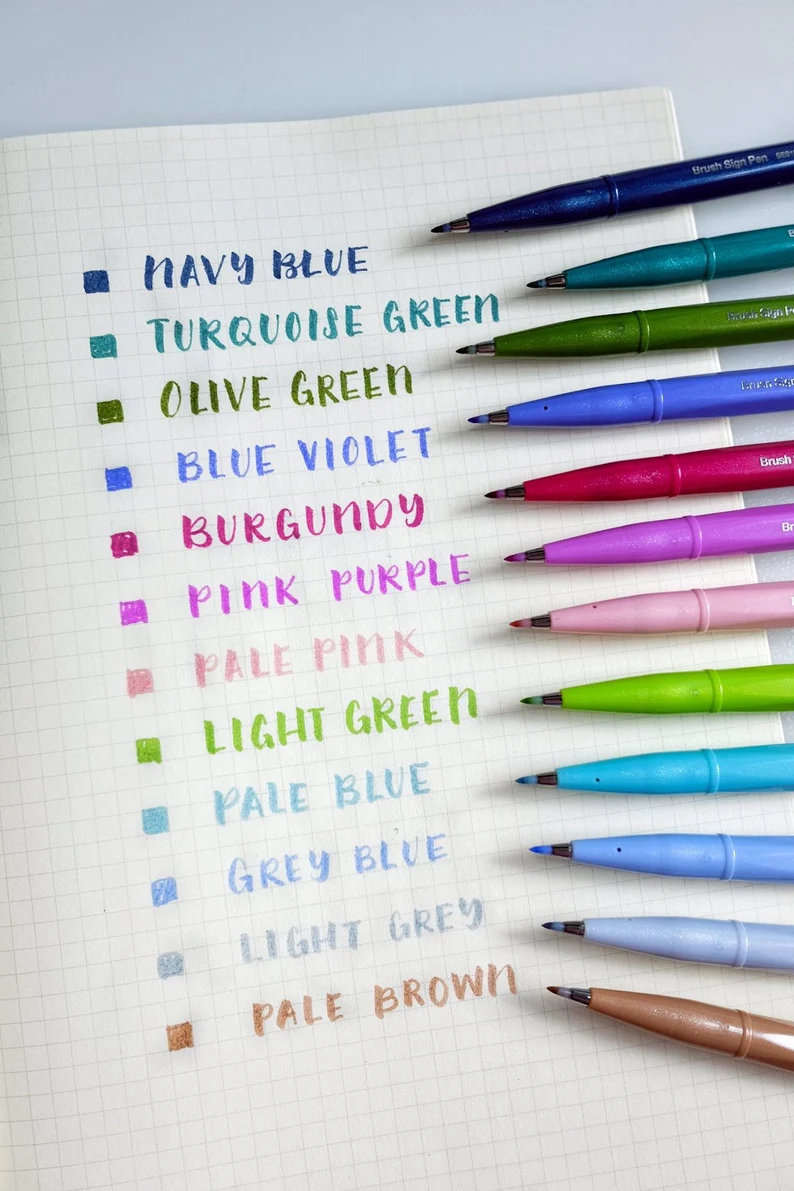 Brush Sign Pen
NAVY BLUE
TURQUOISE GREEN
OLIVE GREEN
Brush Sign
BLUE VIOLET
Brush Sign
BURGUNDY
Brush
PINK PURPLE
PALE PINK
LIGHT GREEN
PALE BLUE
GREY BLUE
LIGHT GREY
PALE BROWN